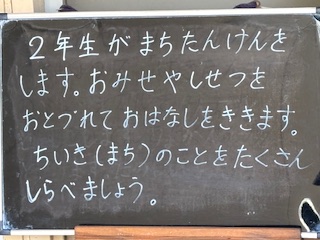 2年生がまちたんけんを
します。おみせやしせつを
おとづれておはなしをききます。
ちいき(まち)のことをたくさん
しらべましょう。